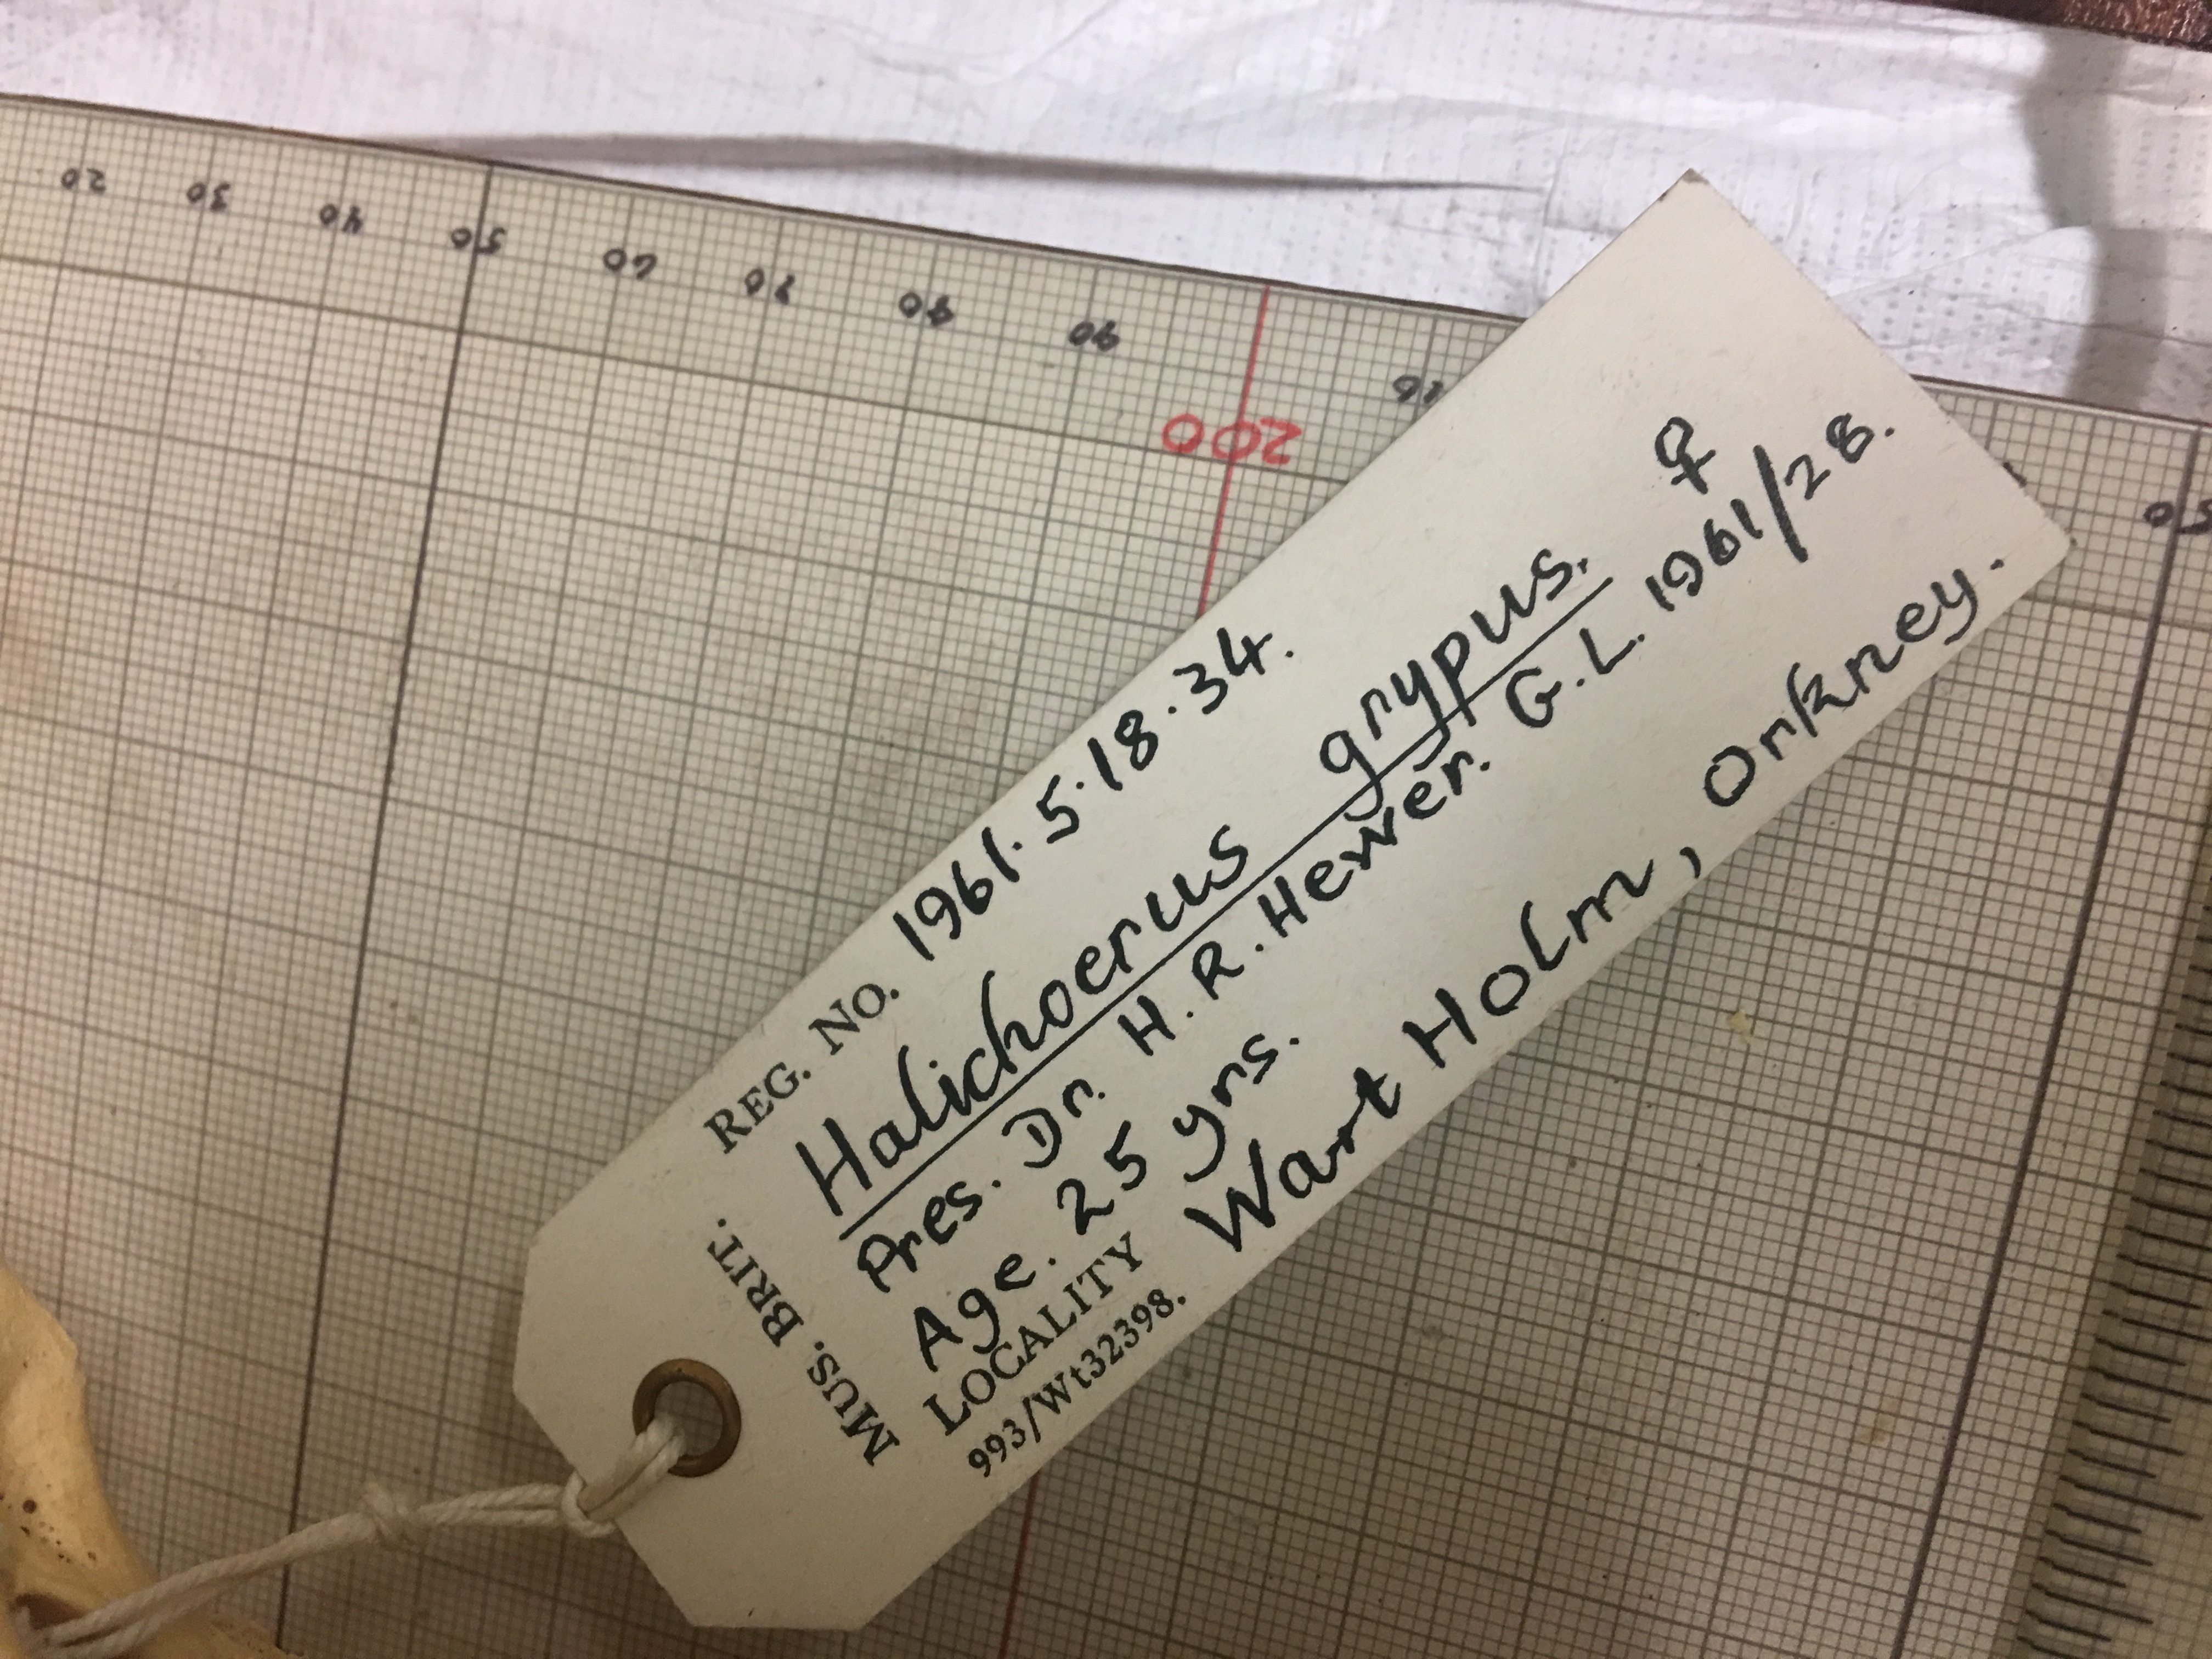 MUS. BRIT.
REG. NO. 1961.5.18.34.
Halichoerus grypus. ♀
Pres. Dr. H.R. Hewer. G.L. 1961/28.
Age. 25 yrs.
LOCALITY Wart Holm, Orkney.
993/Wt32398.
20
30
40
50
60
70
80
90
200
10
50